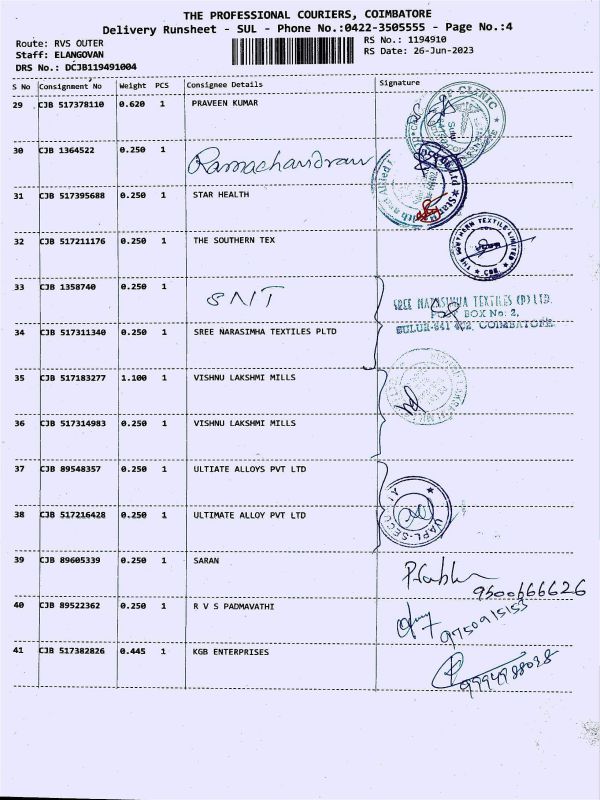 THE PROFESSIONAL COURIERS, COIMBATORE
Delivery Runsheet - SUL - Phone No.:0422-3505555 - Page No.:4
Route: RVS OUTER
Staff: ELANGOVAN
DRS No.: DCJB119491004
RS No.: 1194910
RS Date: 26-Jun-2023
S No Consignment No Weight PCS Consignee Details Signature
29 CJB 517378110 0.620 1 PRAVEEN KUMAR
CLINIC
30 CJB 1364522 0.250 1 Ramachandran
31 CJB 517395688 0.250 1 STAR HEALTH
Star Health and Allied
32 CJB 517211176 0.250 1 THE SOUTHERN TEX
THE SOUTHERN TEXTILE LIMITED
CBE.
33 CJB 1358740 0.250 1 SNIT
SREE NARASIMHA TEXTILES (P) LTD.
BOX No. 2,
SULUR-641 402, COIMBATORE
34 CJB 517311340 0.250 1 SREE NARASIMHA TEXTILES PLTD
35 CJB 517183277 1.100 1 VISHNU LAKSHMI MILLS
36 CJB 517314983 0.250 1 VISHNU LAKSHMI MILLS
37 CJB 89548357 0.250 1 ULTIATE ALLOYS PVT LTD
38 CJB 517216428 0.250 1 ULTIMATE ALLOY PVT LTD
UAPL-SECURITY
39 CJB 89605339 0.250 1 SARAN
Prabhu
9500666626
40 CJB 89522362 0.250 1 R V S PADMAVATHI
9750915153
41 CJB 517382826 0.445 1 KGB ENTERPRISES
9994988038